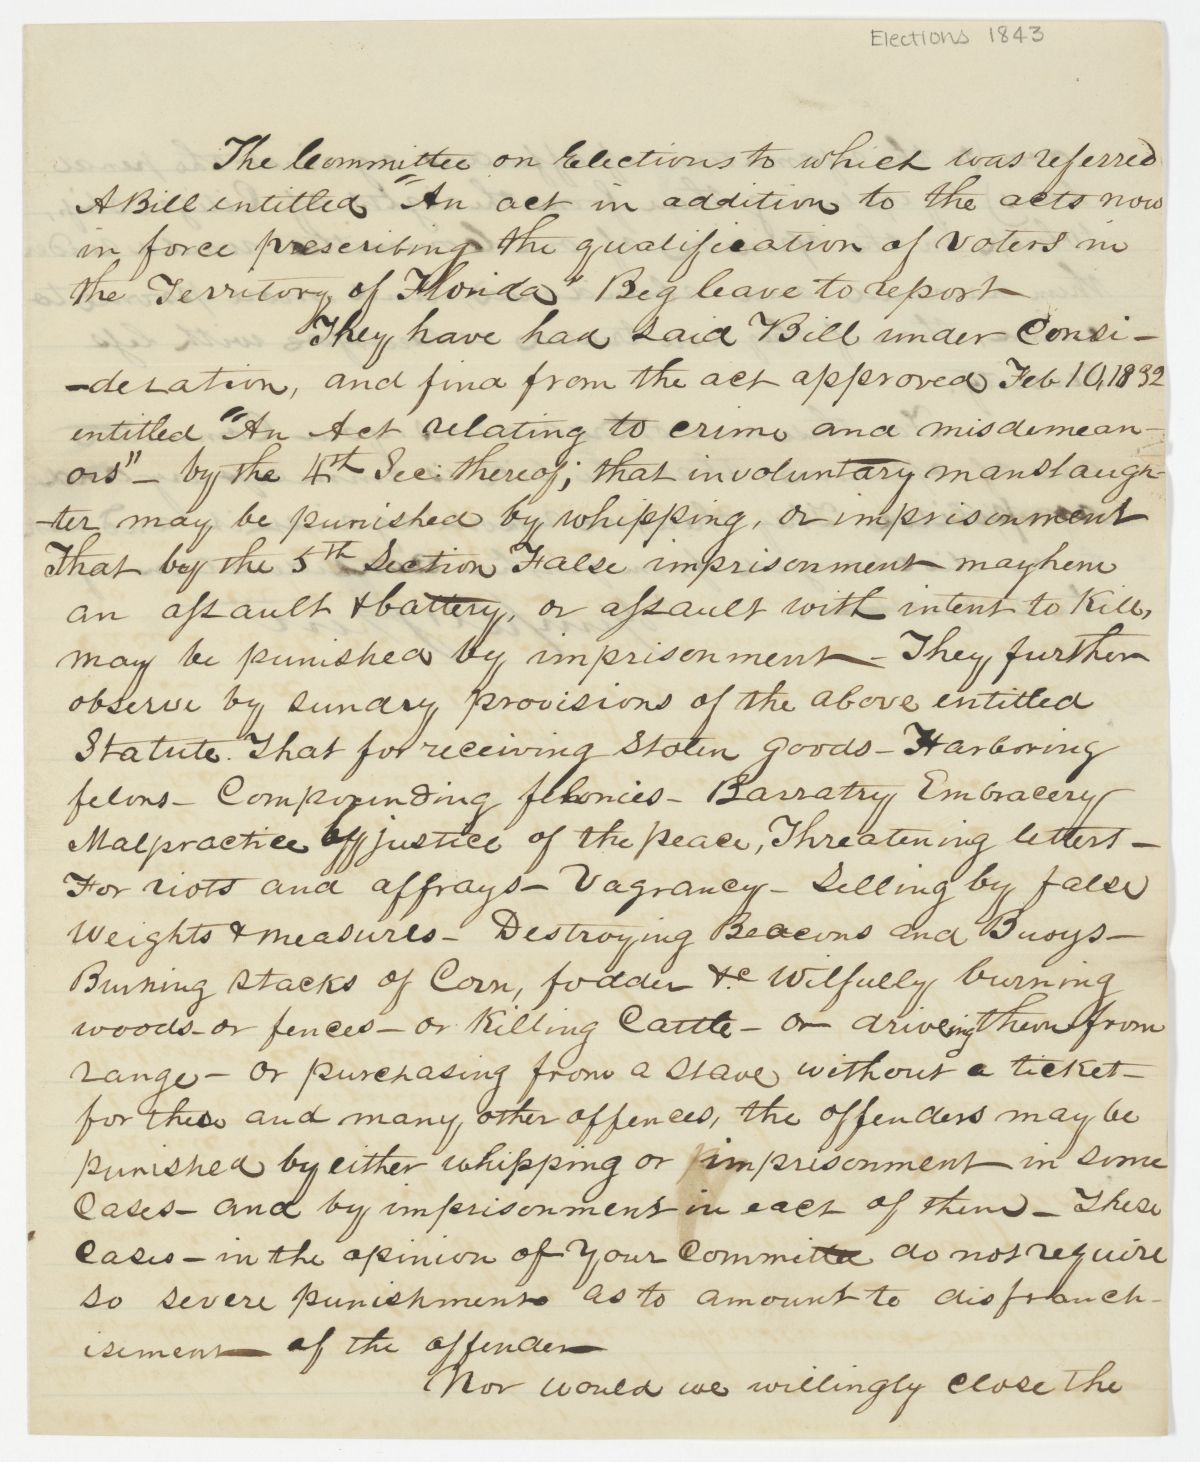 Elections 1843
The Committee on Elections to which was referred
A Bill entitled "An act in addition to the acts now
in force prescribing the qualification of voters in
the Territory of Florida" Beg leave to report
They have had said Bill under Consi-
-deration, and find from the act approved Feb 10, 1832
entitled "An Act relating to crime and misdemean-
ors" - by the 4th Sec: thereof; that involuntary manslaugh-
-ter may be punished by whipping, or imprisonment
That by the 5th Section False imprisonment mayhem
an assault & battery, or assault with intent to Kill,
may be punished by imprisonment - They further
observe by sundry provisions of the above entitled
Statute. That for receiving Stolen goods - Harboring
felons - Compounding felonies - Barratry Embracery
Malpractice by justice of the peace, Threatening letters -
For riots and affrays - Vagrancy - Selling by false
Weights & measures - Destroying Beacons and Buoys -
Burning Stacks of Corn, fodder &c Wilfully burning
woods - or fences - or Killing Cattle - or driveing them from
range - or purchasing from a slave without a ticket -
for these and many other offences, the offenders may be
punished by either whipping or imprisonment in some
Cases - and by imprisonment in each of them - These
Cases - in the opinion of your Committee do not require
so severe punishment as to amount to disfranch-
isement of the offender
Nor would we willingly close the